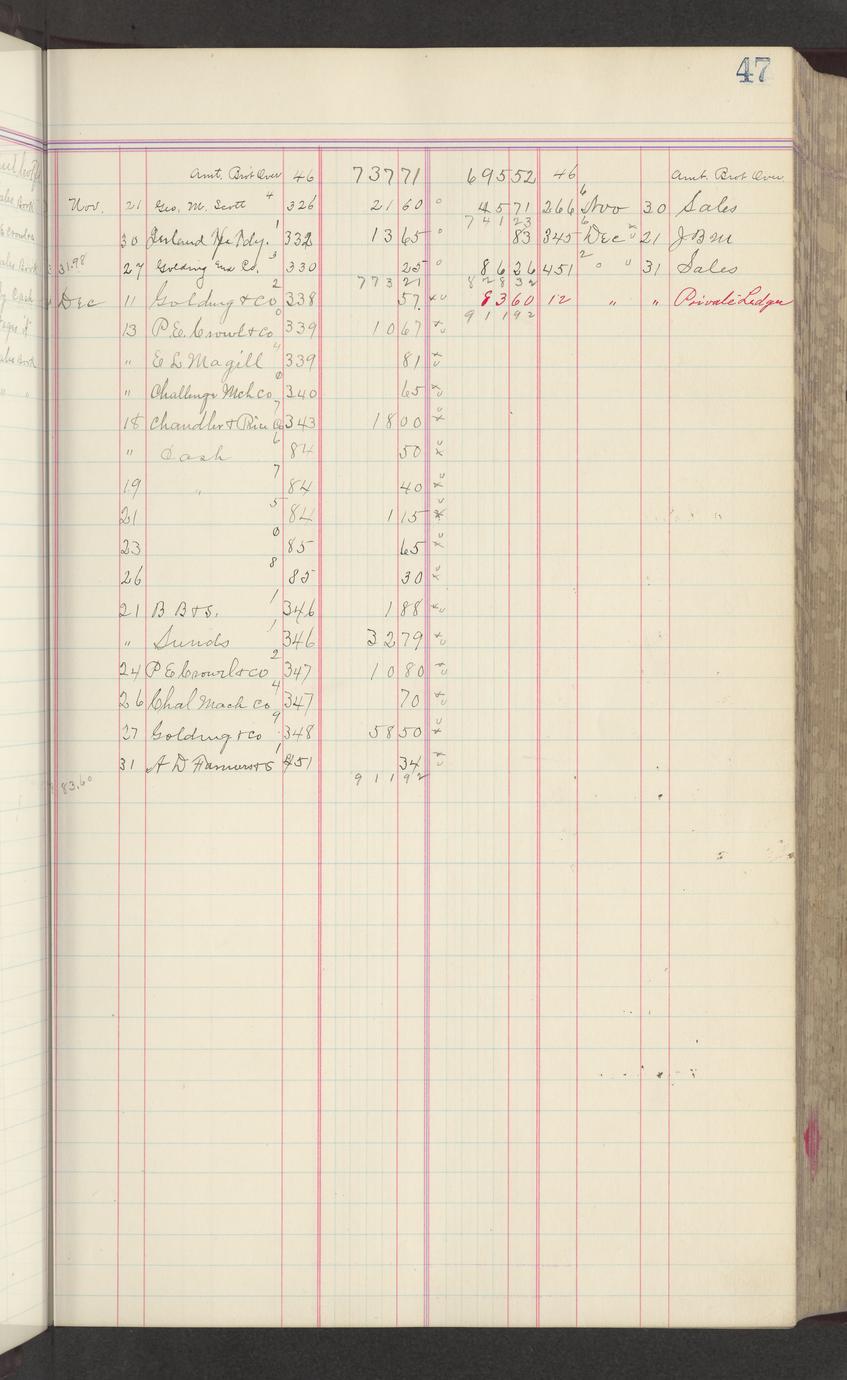 47
Amt. Brot Over 46 737 71 695 52 46 Amt. Brot Over
Nov. 21 Geo. M. Scott 4 326 21 60 45 71 266 Nov 30 Sales
741 23
30 Inland 1 332 13 65 83 345 Dec 21 J B M
31.98 27 Golding Co. 3 330 25 86 26 451 " " 31 Sales
773 21 828 32
Dec 11 Golding & Co 2 338 57 83 60 12 " " Private Ledger
911 92
13 P. E. Crowl & Co 0 339 10 67
" E L Magill 4 339 81
" Challenge Mch Co 0 340 65
18 Chandler & Price Co 7 343 18 00
" Cash 6 84 50
19 " 7 84 40
21 5 84 1 15
23 0 85 65
26 8 85 30
21 B B & S. 1 346 1 88
" Sunds 1 346 32 79
24 P E Crowl & Co 2 347 10 80
26 Chal Mach Co 4 347 70
27 Golding & Co 9 348 58 50
31 A D Farmer & S 1 451 34
83.60 911 92